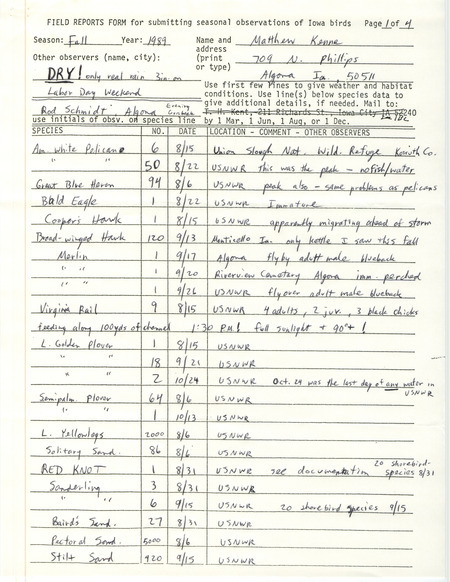 FIELD REPORTS FORM for submitting seasonal observations of Iowa birds Page 1 of 4
Season: Fall Year: 1989 Name and address (print or type) Matthew Kenne
709 N. Phillips
Algona Ia. 50511
Other observers (name, city):
DRY! only real rain 3in. on
Labor Day Weekend
Rod Schmidt, Algona
use initials of obsv. on species line
Use first few lines to give weather and habitat
conditions. Use line(s) below species data to
give additional details, if needed. Mail to:
T. H. Kent, 211 Richards St., Iowa City IA 52240
by 1 Mar, 1 Jun, 1 Aug, or 1 Dec.
SPECIES NO. DATE LOCATION - COMMENT - OTHER OBSERVERS
Am White Pelican 6 8/15 Union Slough Nat. Wild. Refuge Kossuth Co.
50 8/22 USNWR this was the peak - no fish/water
Great Blue Heron 94 8/6 USNWR peak also - same problems as pelicans
Bald Eagle 1 8/22 USNWR Immature
Cooper's Hawk 1 8/15 USNWR apparently migrating ahead of storm
Broad-winged Hawk 120 9/13 Monticello Ia. only kettle I saw this fall
Merlin 1 9/17 Algona flyby adult male blueback
" " 1 9/20 Riverview Cemetary Algona imm. perched
" " 1 9/26 USNWR flyover adult male blueback
Virginia Rail 9 8/15 USNWR 4 adults, 2 juv., 3 black chicks
feeding along 100yds of channel 1:30 P.M! full sunlight + 90°+!
L. Golden Plover 1 8/15 USNWR
" 18 9/21 USNWR
" 2 10/24 USNWR Oct. 24 was the last day of any water in USNWR
Semipalm. Plover 64 8/6 USNWR
" " 1 10/13 USNWR
L. Yellowlegs 2000 8/6 USNWR
Solitary Sand. 86 8/6 USNWR
RED KNOT 1 8/31 USNWR see documentation 20 shorebird species 8/31
Sanderling 3 8/31 USNWR
" " 6 9/15 USNWR 20 shorebird species 9/15
Baird's Sand. 27 8/31 USNWR
Pectoral Sand. 5000 8/6 USNWR
Stilt Sand 420 9/15 USNWR